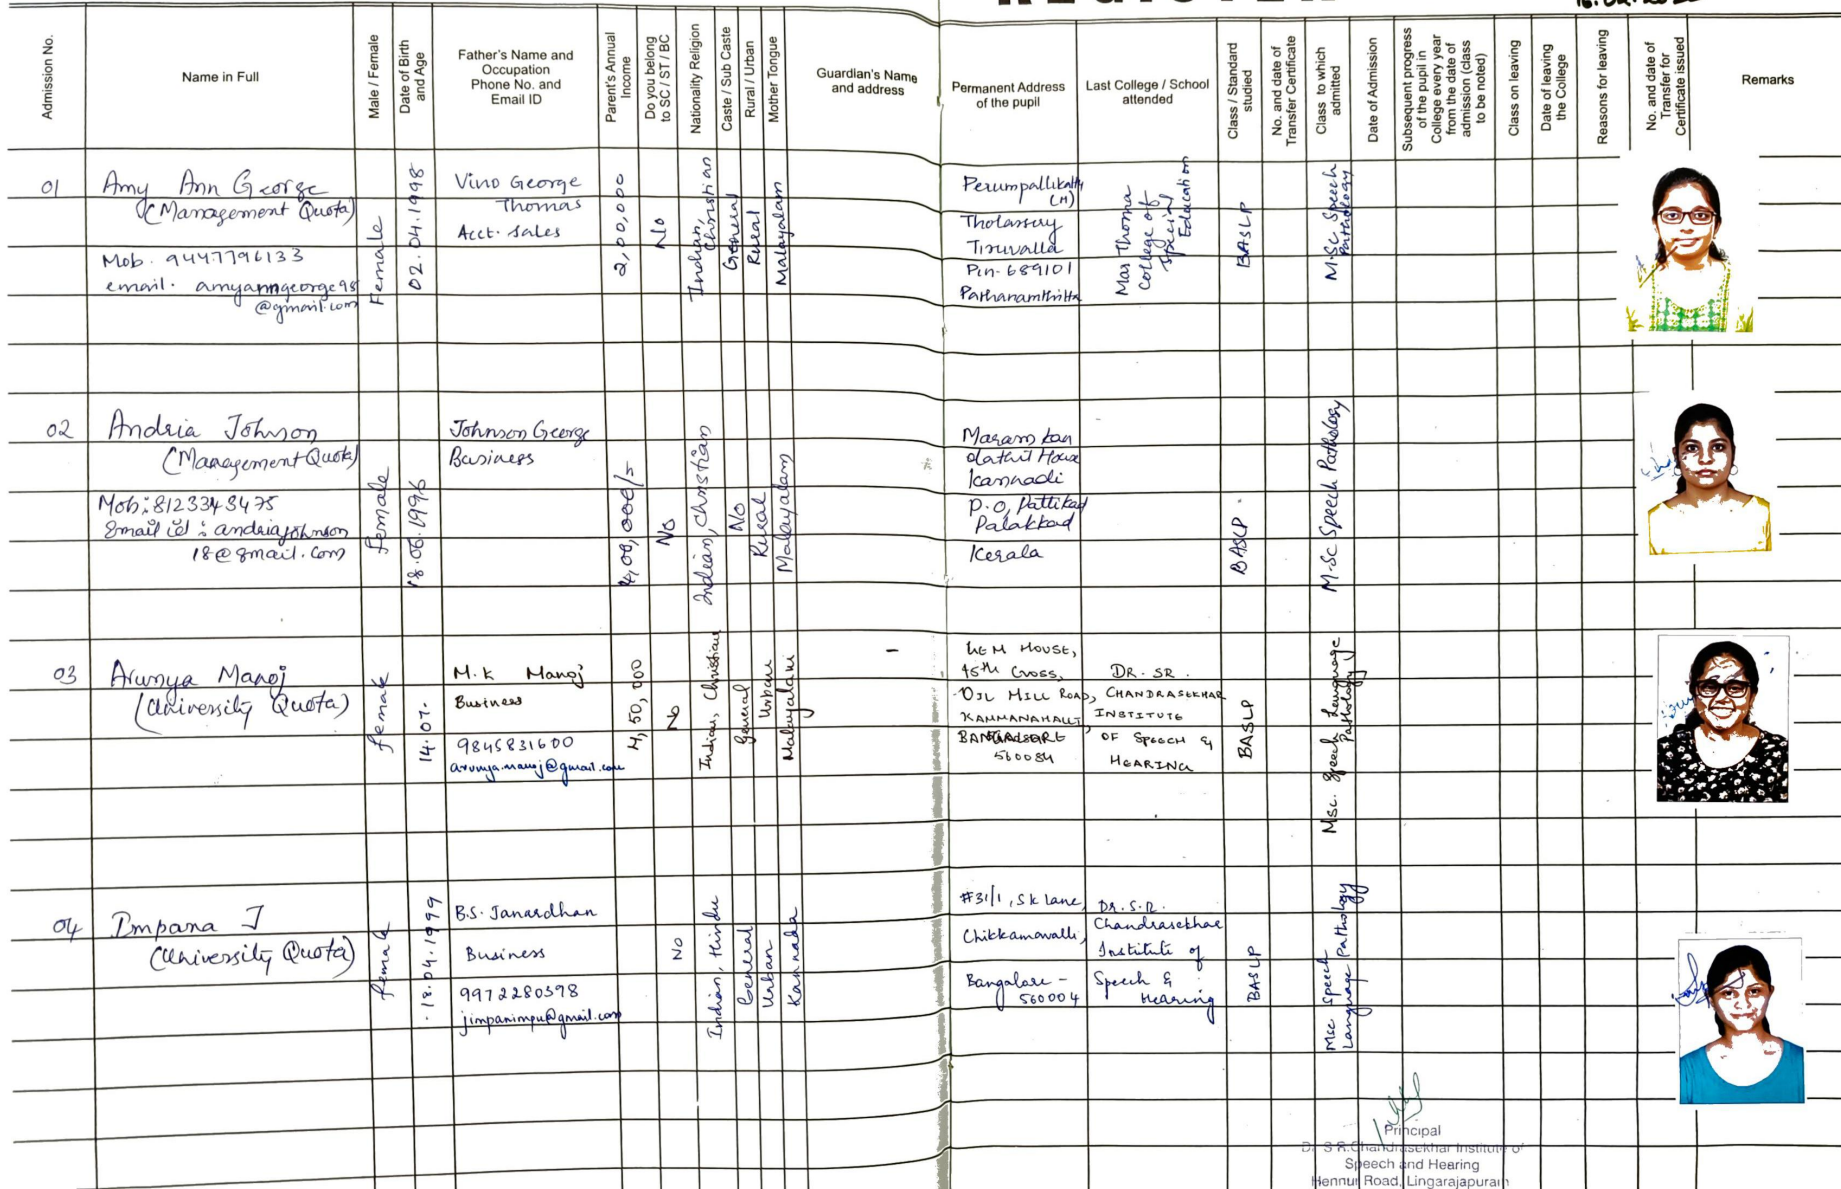 REGISTER
Admission No.
Name in Full
Male / Female
Date of Birth
and Age
Father's Name and
Occupation
Phone No. and
Email ID
Parent's Annual
Income
Do you belong
to SC / ST / BC
Nationality Religion
Caste / Sub Caste
Rural / Urban
Mother Tongue
Guardian's Name
and address
Permanent Address
of the pupil
Last College / School
attended
Class / Standard
studied
No. and date of
Transfer Certificate
Class to which
admitted
Date of Admission
Subsequent progress
of the pupil in
College every year
from the date of
admission (class
to be noted)
Class on leaving
Date of leaving
the College
Reasons for leaving
No. and date of
Transfer for
Certificate issued
Remarks
01
Amy Ann George
(Management Quota)
Mob. 9447796133
email. amyanngeorge98
@gmail.com
Female
02.04.1998
Vino George
Thomas
Acct. Sales
2,00,000
No
Indian,
Christian
General
Rural
Malayalam
Perumpallikattu
(H)
Tholassery
Tiruvalla
Pin-689101
Pathanamthitta
Mar Thoma
College of
Special
Education
BASLP
M.Sc. Speech
Pathology
02
Andria Johnson
(Management Quota)
Mob: 8123343475
Email id : andriajohnson
18@gmail.com
Female
18.06.1996
Johnson George
Business
4,00,000/=
No
Indian, Christian
No
Rural
Malayalam
Maramkan
dathil House
Kannadi
P.O, Pattikad
Palakkad
Kerala
BASLP.
M.Sc Speech Pathology
03
Arunya Manoj
(University Quota)
Female
14.07.
M.K Manoj
Business
9845831600
arunya.manoj@gmail.com
4,50,000
No
Indian, Christian
General
Urban
Malayalam
-
HOUSE,
45th Cross,
OIL MILL ROAD,
KAMMANAHALLI,
560084
DR. SR.
CHANDRASEKHAR
INSTITUTE
OF SPEECH &
HEARING
BASLP
Msc. Speech Language
Pathology
04
Impana J
(University Quota)
Female
18.04.1999
B.S. Janardhan
Business
9972280598
jimpanimpu@gmail.com
No
Indian, Hindu
General
Urban
Kannada
#31/1, SK lane,
Chikkamavalli,
Bangalore -
560004
Dr. S.R.
Chandrasekhar
Institute of
Speech &
Hearing
BASLP
Msc Speech
Language Pathology
Principal
Dr. S.R.Chandrasekhar Institute of
Speech and Hearing
Hennur Road, Lingarajapuram